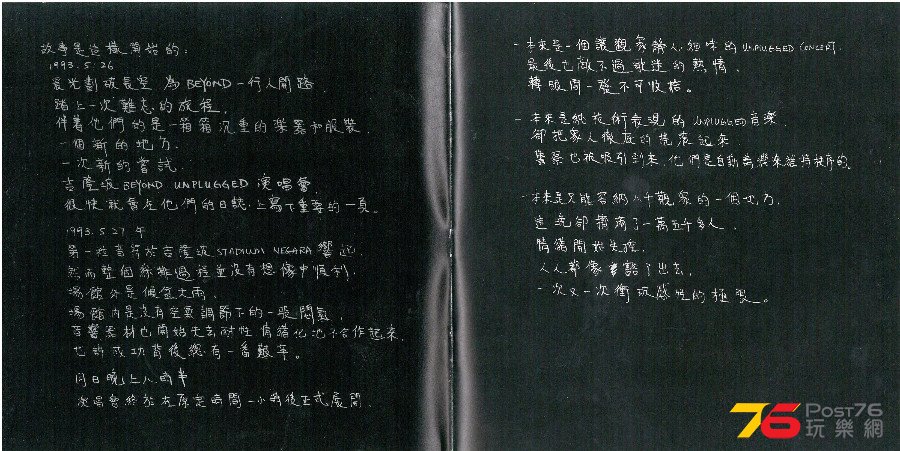 故事是這樣開始的：
1993.5.26
晨光劃破長空，為BEYOND一行人開路
踏上一次難忘的旅程，
伴着他們的是一箱箱沉重的樂器和服裝
一個新的地方
一次新的嘗試
吉隆坡BEYOND UNPLUGGED演唱會
很快就會在他們的日誌上寫下重要的一頁。
1993.5.27 午
第一粒音符於吉隆坡STADIUM NEGARA響起
然而整個綵排過程並沒有想像中順利
場館外是傾盆大雨
場館內是沒有空氣調節下的一股悶氣
音響器材也開始失去耐性 情緒化地不合作起來
也許成功背後總有一番艱辛。
同日晚上八時半
演唱會終於在原定時間一小時後正式展開
- 本來是一個讓觀眾靜心細味的UNPLUGGED CONCERT，
最後也敵不過歌迷的熱情，
轉眼間一發不可收拾。
- 本來是純技術表現的UNPLUGGED音樂
卻把眾人徹底的搖滾起來
警察也被吸引到來，他們是自動前來維持秩序的
- 本來是只能容納八千觀眾的一個地方
這晚卻擠滿了一萬五千多人
情緒開始失控
人人都像豁了出去，
一次又一次衝玩感性的極點。
76 Post76
玩樂網